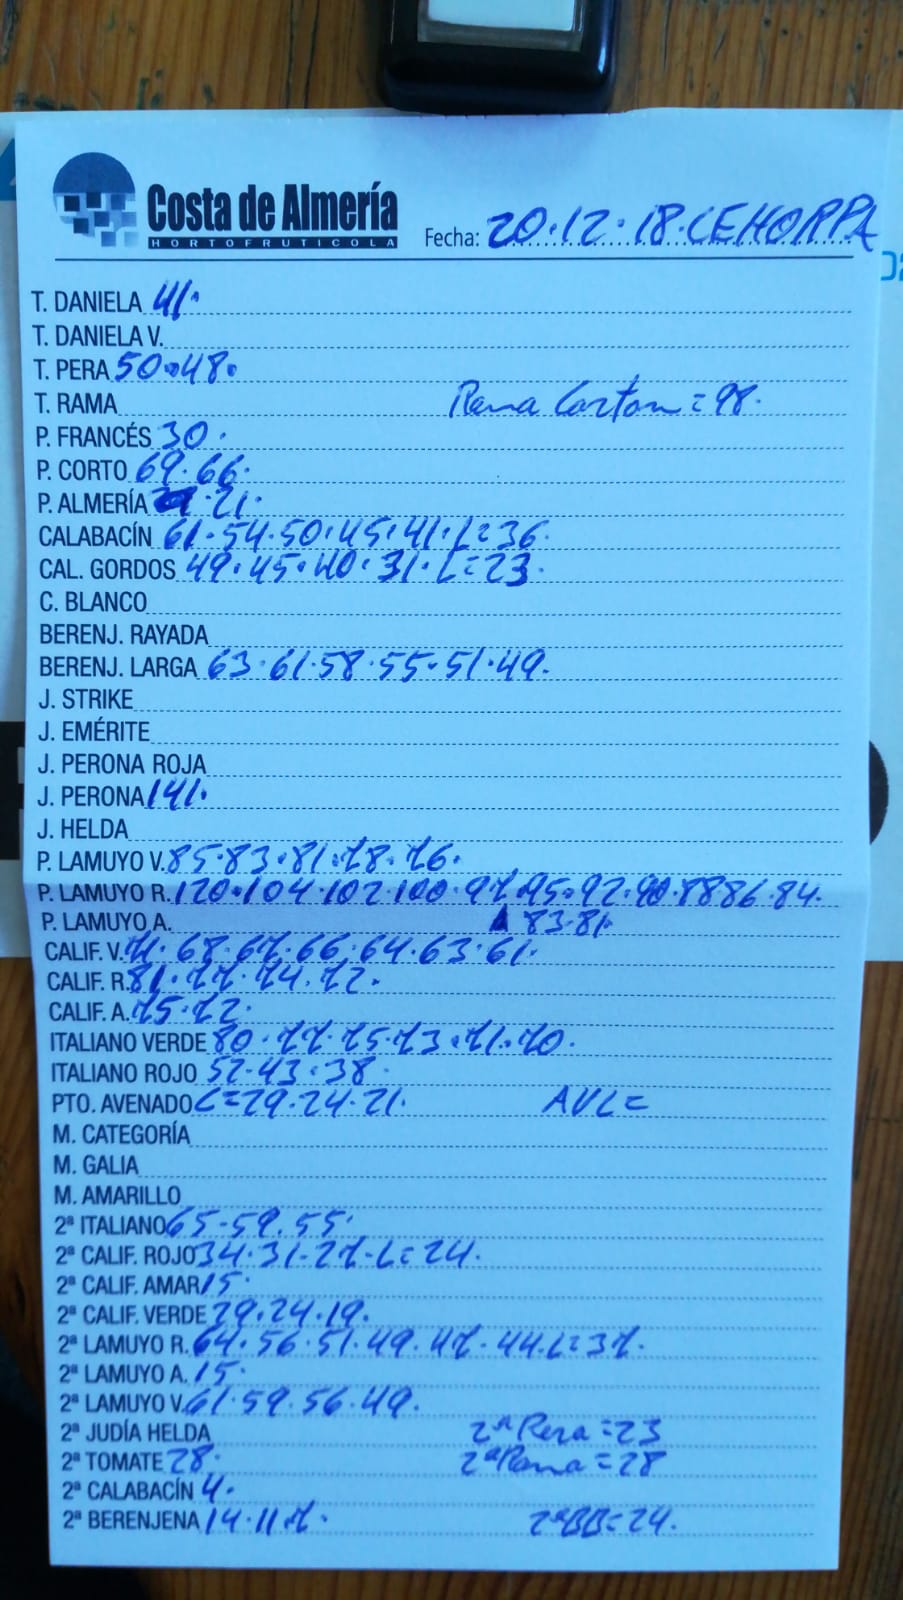 Costa de Almería
HORTOFRUTICOLA
Fecha: 20.12.18.CEHORPA
T. DANIELA 41.
T. DANIELA V.
T. PERA 50.48.
T. RAMA Rama Carton = 98.
P. FRANCÉS 30.
P. CORTO 69.66.
P. ALMERÍA .21.
CALABACÍN 61.54.50.45.41.L=36.
CAL. GORDOS 49.45.40.31.L=23.
C. BLANCO
BERENJ. RAYADA
BERENJ. LARGA 63.61.58.55.51.49.
J. STRIKE
J. EMÉRITE
J. PERONA ROJA
J. PERONA 141.
J. HELDA
P. LAMUYO V. 85.83.81.78.76.
P. LAMUYO R. 120.104.102.100.97.95.92.90.88 86.84.
P. LAMUYO A. 83.81.
CALIF. V. 71.68.67.66.64.63.61.
CALIF. R. 81.77.74.72.
CALIF. A. 75.72.
ITALIANO VERDE 80.77.75.73.71.70.
ITALIANO ROJO 52.43.38.
PTO. AVENADO L=29.24.21. AVL=
M. CATEGORÍA
M. GALIA
M. AMARILLO
2ª ITALIANO 65-59.55.
2ª CALIF. ROJO 34.31-27-L=24.
2ª CALIF. AMAR 15.
2ª CALIF. VERDE 29.24.19.
2ª LAMUYO R. 64.56.51.49.47.44.L=37.
2ª LAMUYO A. 15.
2ª LAMUYO V. 61.59.56.49.
2ª JUDÍA HELDA 2ª Pera = 23
2ª TOMATE 28. 2ª Rama = 28
2ª CALABACÍN 4.
2ª BERENJENA 14.11.7. 2ªBB=24.